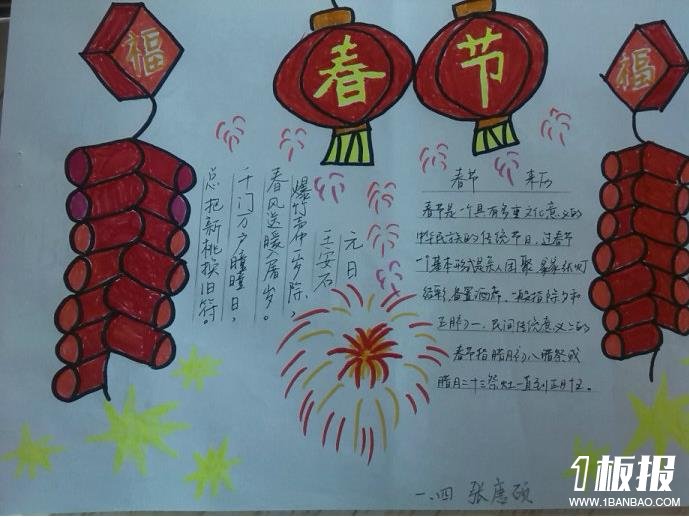 福
春节
福
元日
王安石
爆竹声中一岁除，
春风送暖入屠苏。
千门万户曈曈日，
总把新桃换旧符。
春节 来历
春节是个具有多重文化意义的
中华民族的传统节日，过春节
一个基本形式是亲人团聚 张灯
结彩，备置酒席，一般指除夕和
正月初一，民间传统意义上的
春节指腊月初八腊祭或
腊月二十三祭灶一直到正月十五。
一.四 张唐硕
1板报
WWW.1BANBAO.COM